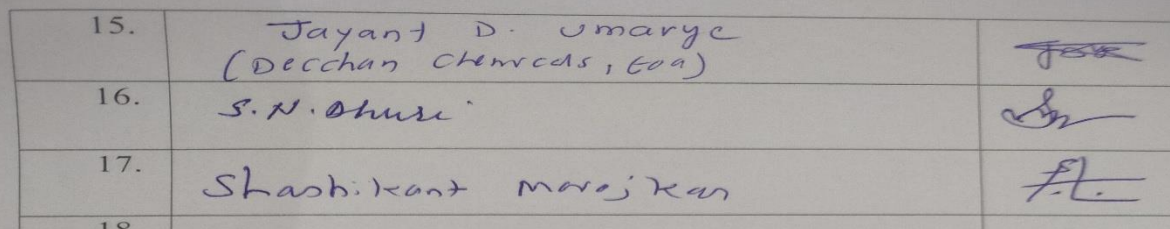 15. Jayant D. Umarye
(Decchan Chemicals, Goa)
16. S.N. Dhuri
17. Shashikant Marajkar
18